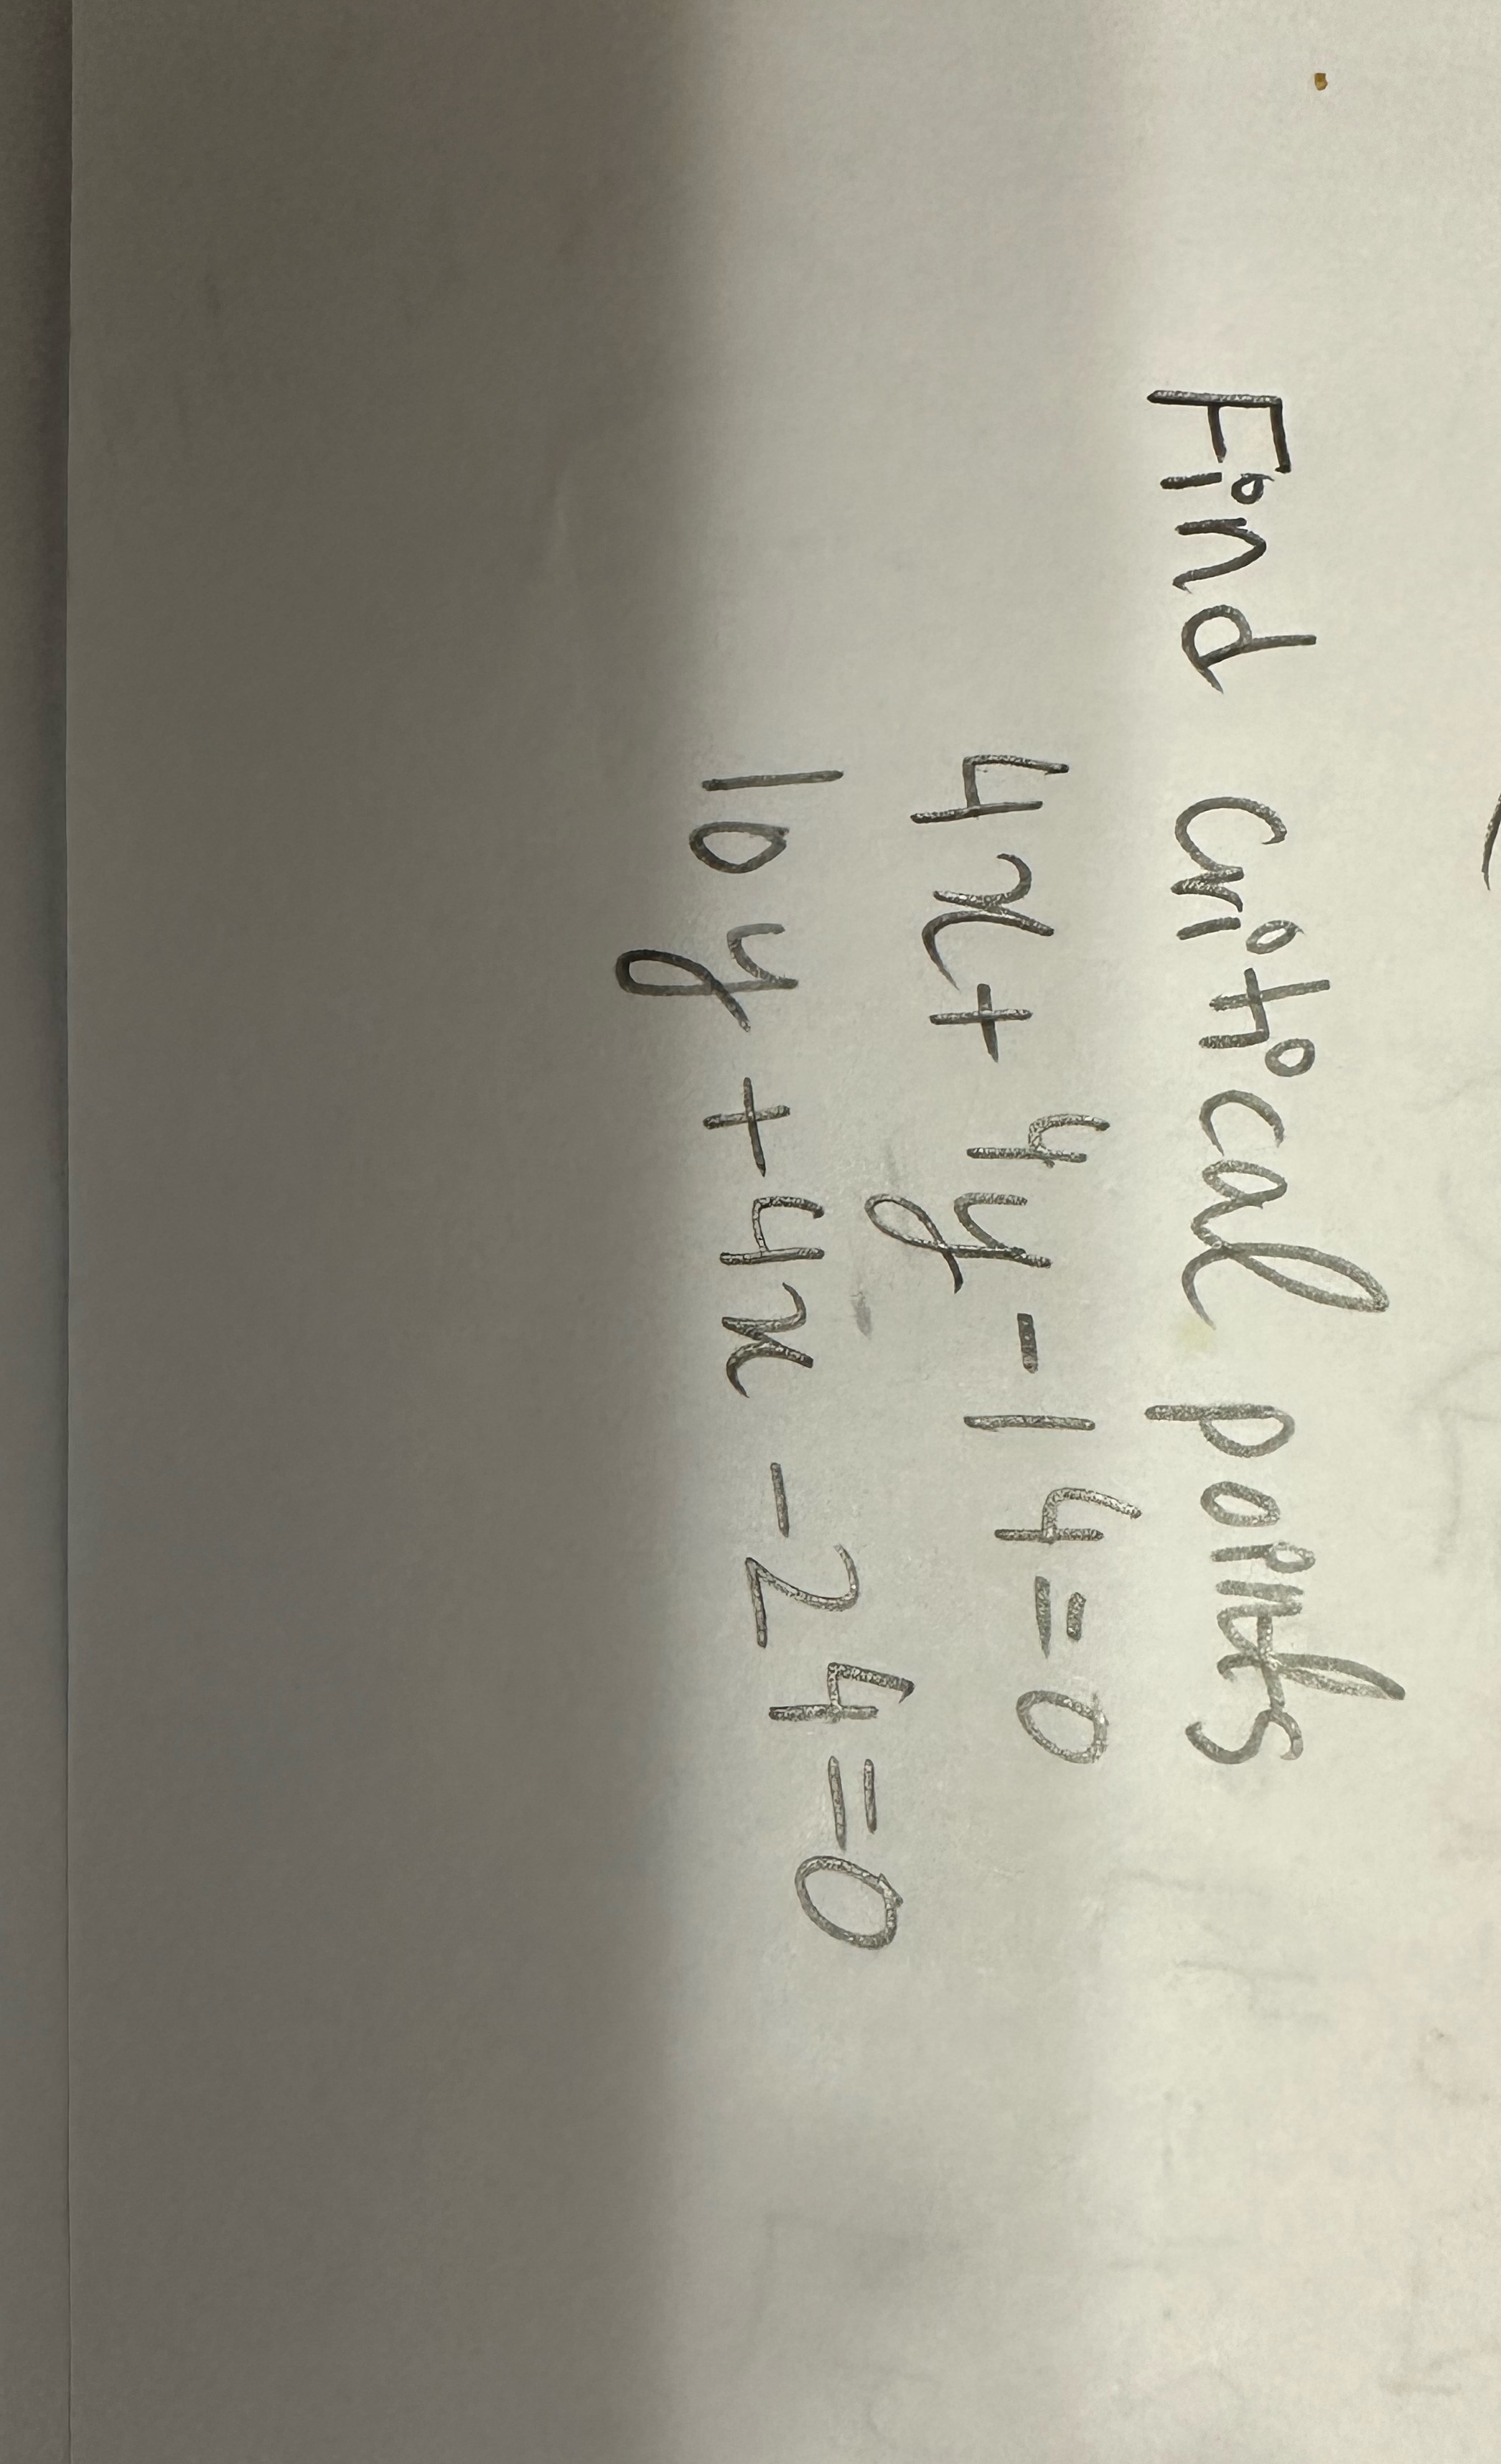 Find critical points
4x + 4y - 14 = 0
10y + 4x - 24 = 0